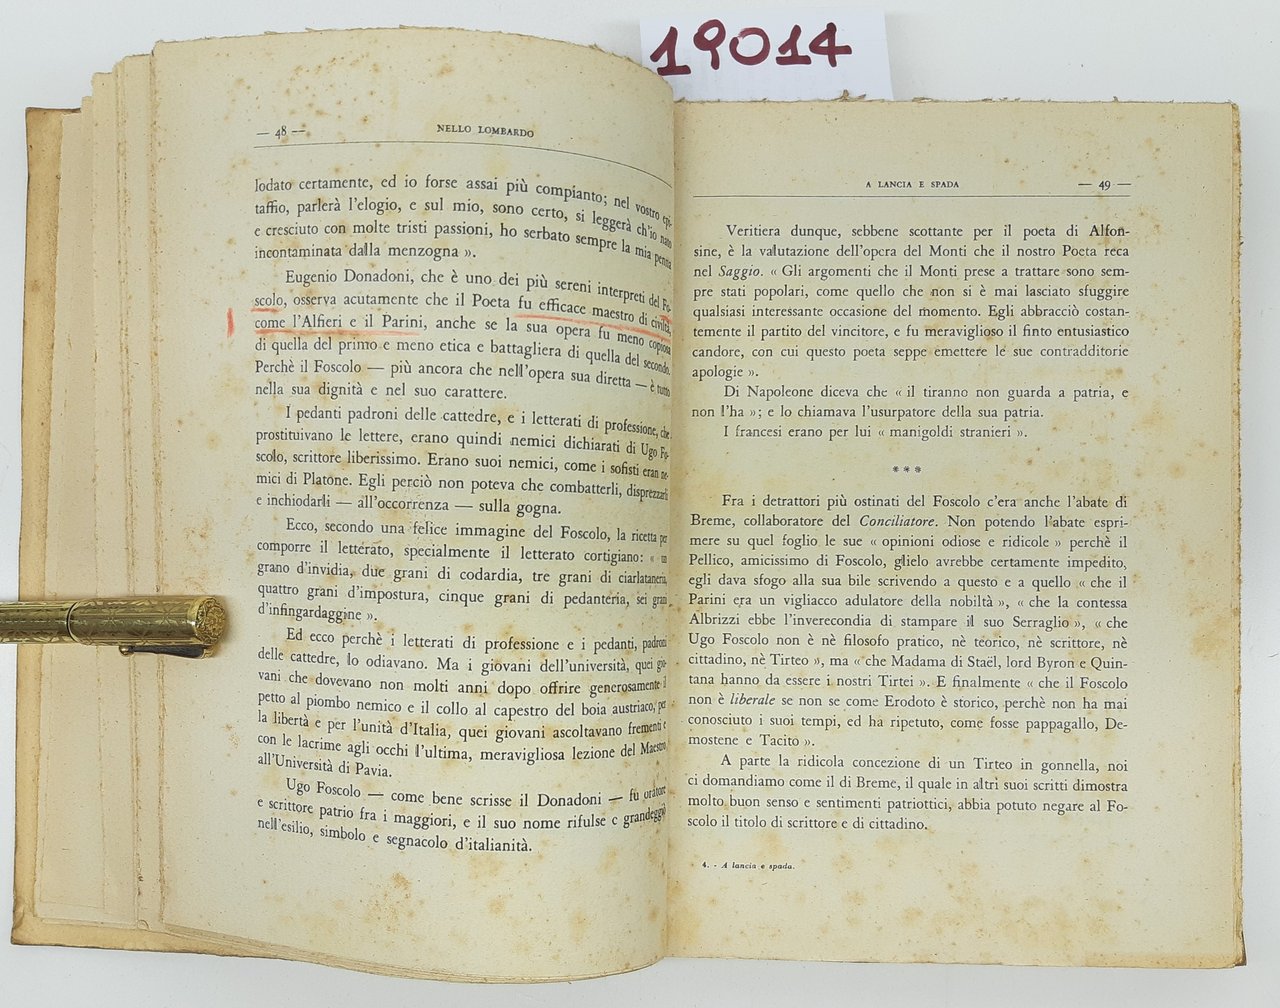 19014
— 48 —
NELLO LOMBARDO
lodato certamente, ed io forse assai più compianto; nel vostro epi-
taffio, parlerà l'elogio, e sul mio, sono certo, si leggerà ch'io nato
e cresciuto con molte tristi passioni, ho serbato sempre la mia penna
incontaminata dalla menzogna ».
Eugenio Donadoni, che è uno dei più sereni interpreti del Fo-
scolo, osserva acutamente che il Poeta fu efficace maestro di civiltà,
come l'Alfieri e il Parini, anche se la sua opera fu meno copiosa
di quella del primo e meno etica e battagliera di quella del secondo.
Perchè il Foscolo — più ancora che nell'opera sua diretta — è tutto
nella sua dignità e nel suo carattere.
I pedanti padroni delle cattedre, e i letterati di professione, che
prostituivano le lettere, erano quindi nemici dichiarati di Ugo Fo-
scolo, scrittore liberissimo. Erano suoi nemici, come i sofisti eran ne-
mici di Platone. Egli perciò non poteva che combatterli, disprezzarli
e inchiodarli — all'occorrenza — sulla gogna.
Ecco, secondo una felice immagine del Foscolo, la ricetta per
comporre il letterato, specialmente il letterato cortigiano: « un
grano d'invidia, due grani di codardia, tre grani di ciarlataneria,
quattro grani d'impostura, cinque grani di pedanteria, sei grani
d'infingardaggine ».
Ed ecco perchè i letterati di professione e i pedanti, padroni
delle cattedre, lo odiavano. Ma i giovani dell'università, quei gio-
vani che dovevano non molti anni dopo offrire generosamente il
petto al piombo nemico e il collo al capestro del boia austriaco, per
la libertà e per l'unità d'Italia, quei giovani ascoltavano frementi e
con le lacrime agli occhi l'ultima, meravigliosa lezione del Maestro
all'Università di Pavia.
Ugo Foscolo — come bene scrisse il Donadoni — fu oratore
e scrittore patrio fra i maggiori, e il suo nome rifulse e grandeggiò
nell'esilio, simbolo e segnacolo d'italianità.
A LANCIA E SPADA
— 49 —
Veritiera dunque, sebbene scottante per il poeta di Alfon-
sine, è la valutazione dell'opera del Monti che il nostro Poeta reca
nel Saggio. « Gli argomenti che il Monti prese a trattare sono sem-
pre stati popolari, come quello che non si è mai lasciato sfuggire
qualsiasi interessante occasione del momento. Egli abbracciò costan-
temente il partito del vincitore, e fu meraviglioso il finto entusiastico
candore, con cui questo poeta seppe emettere le sue contradditorie
apologie ».
Di Napoleone diceva che « il tiranno non guarda a patria, e
non l'ha »; e lo chiamava l'usurpatore della sua patria.
I francesi erano per lui « manigoldi stranieri ».
***
Fra i detrattori più ostinati del Foscolo c'era anche l'abate di
Breme, collaboratore del Conciliatore. Non potendo l'abate espri-
mere su quel foglio le sue « opinioni odiose e ridicole » perchè il
Pellico, amicissimo di Foscolo, glielo avrebbe certamente impedito,
egli dava sfogo alla sua bile scrivendo a questo e a quello « che il
Parini era un vigliacco adulatore della nobiltà », « che la contessa
Albrizzi ebbe l'inverecondia di stampare il suo Serraglio », « che
Ugo Foscolo non è nè filosofo pratico, nè teorico, nè scrittore, nè
cittadino, nè Tirteo », ma « che Madama di Staël, lord Byron e Quin-
tana hanno da essere i nostri Tirtei ». E finalmente « che il Foscolo
non è liberale se non se come Erodoto è storico, perchè non ha mai
conosciuto i suoi tempi, ed ha ripetuto, come fosse pappagallo, De-
mostene e Tacito ».
A parte la ridicola concezione di un Tirteo in gonnella, noi
ci domandiamo come il di Breme, il quale in altri suoi scritti dimostra
molto buon senso e sentimenti patriottici, abbia potuto negare al Fo-
scolo il titolo di scrittore e di cittadino.
4. - A lancia e spada.